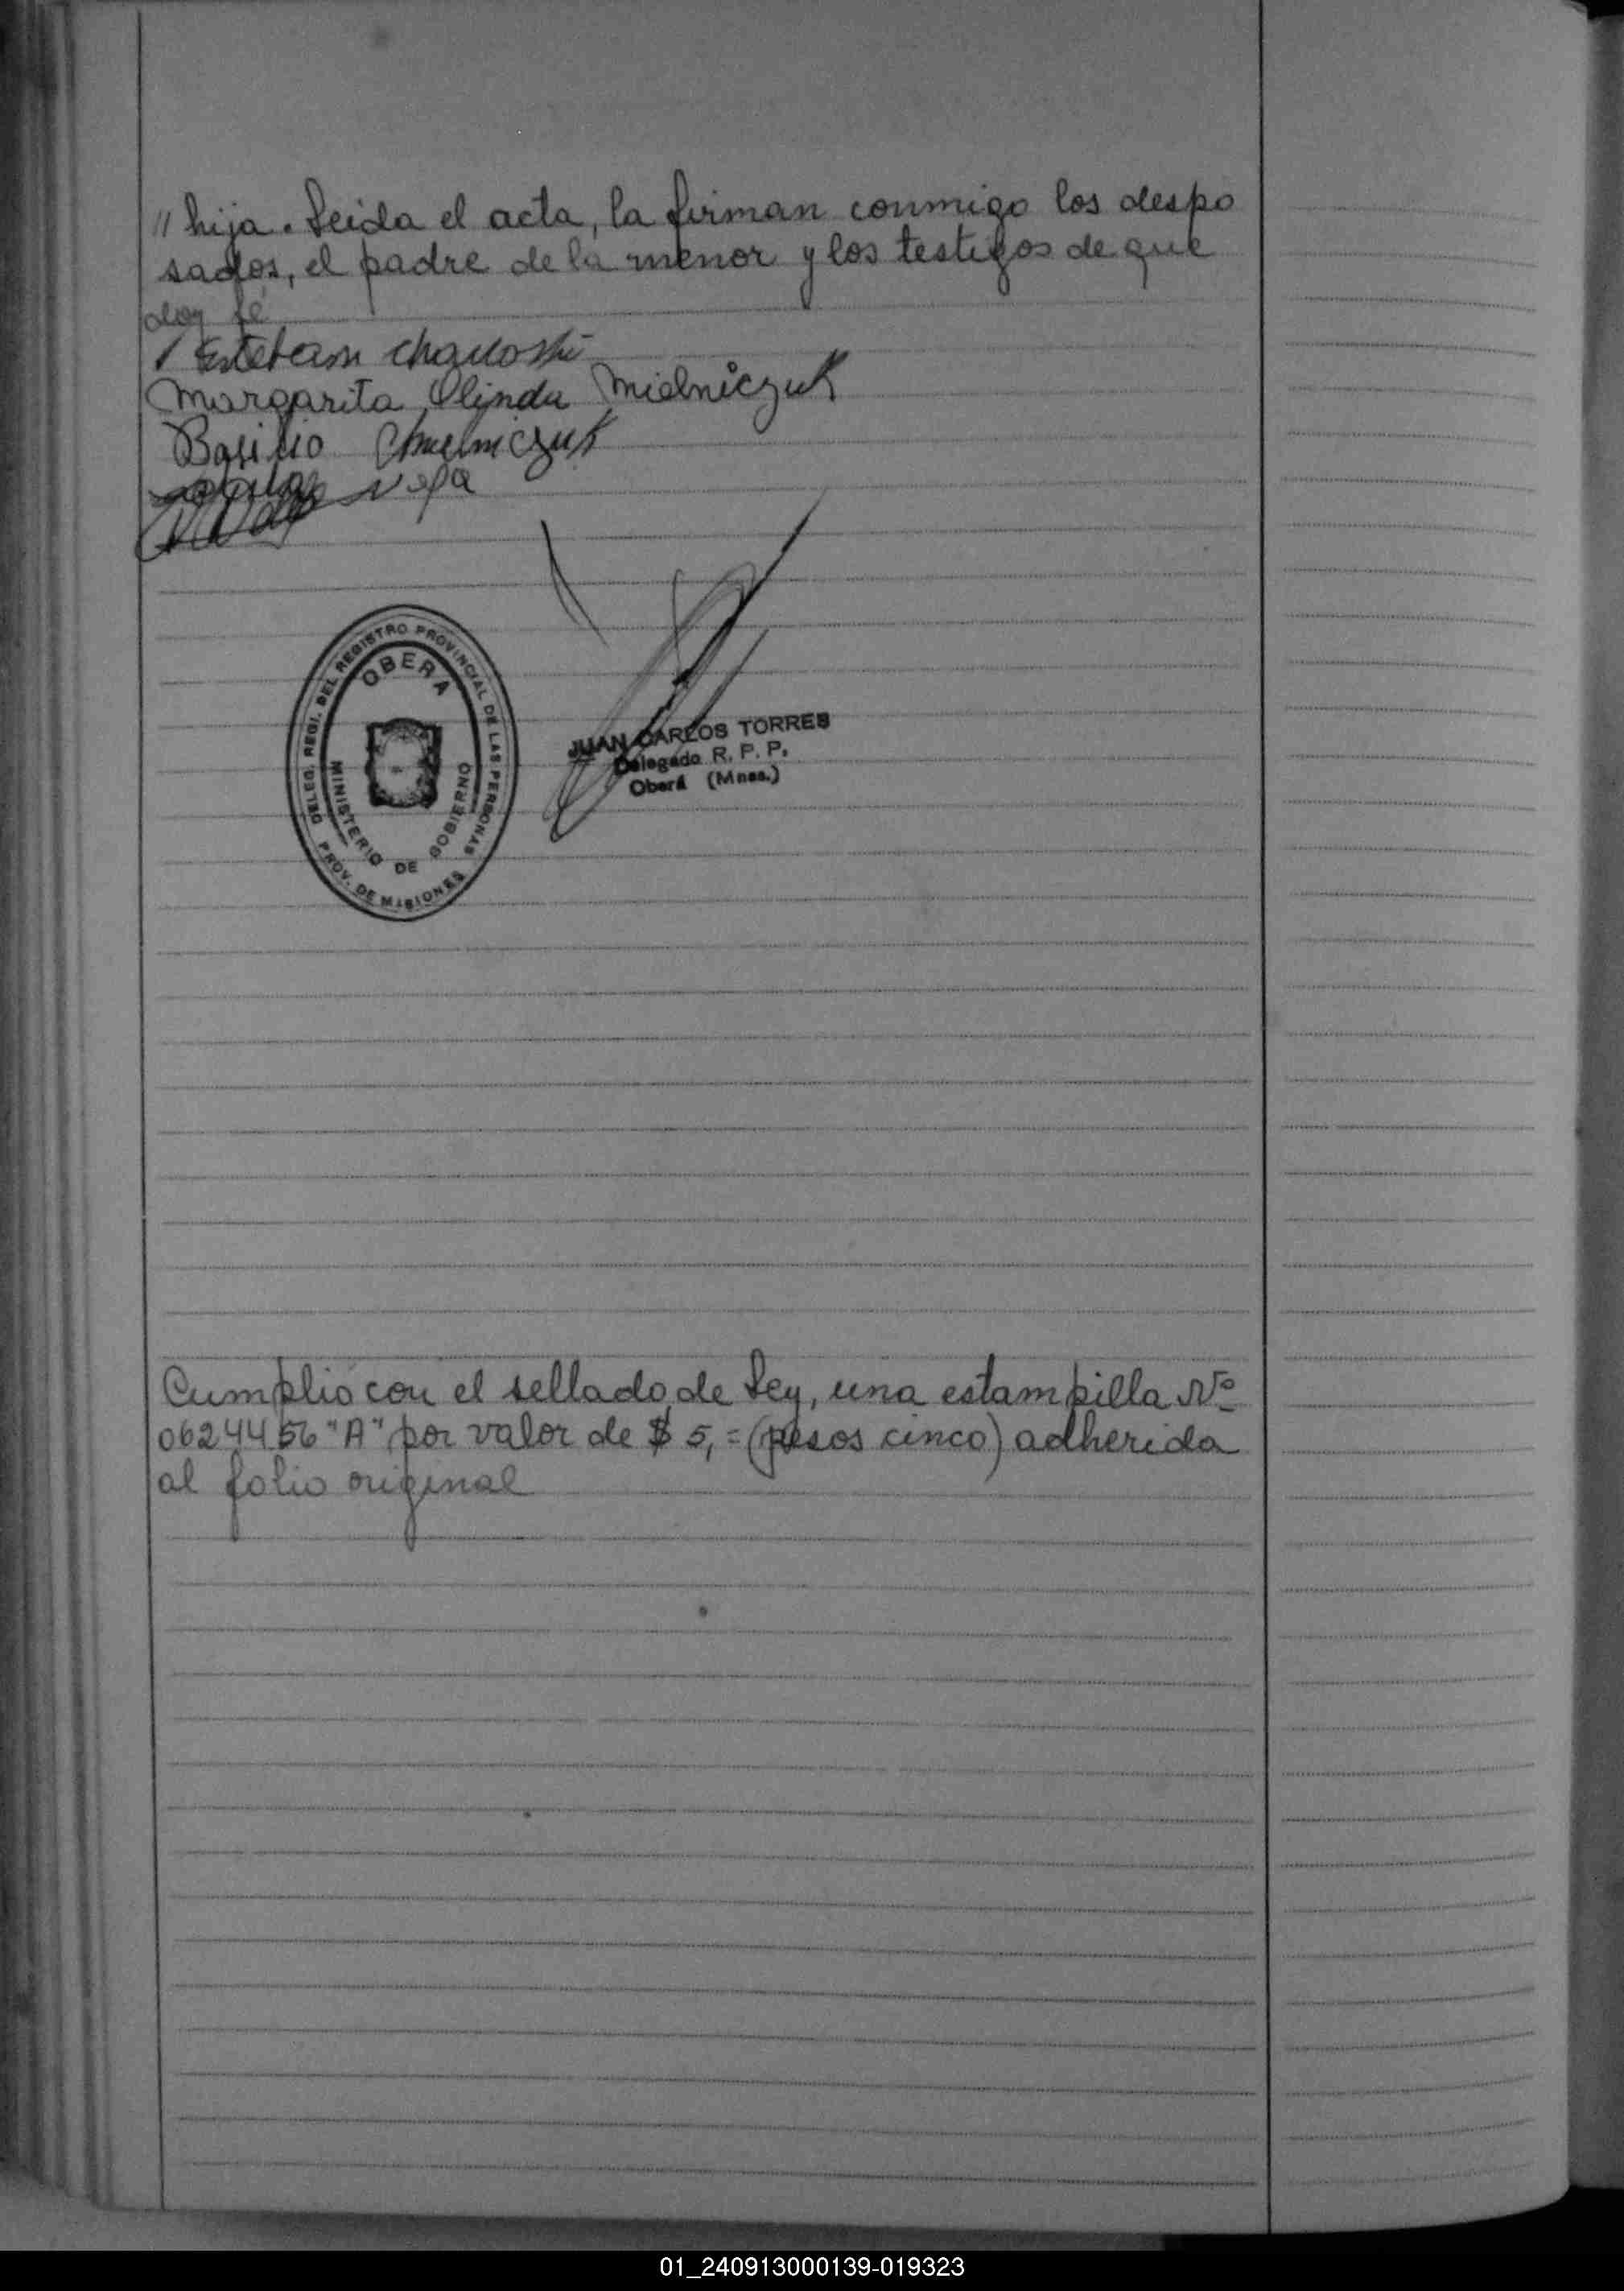 // hija. Leida el acta, la firman conmigo los despo
sados, el padre de la menor y los testigos de que
doy fé
Esteban
Margarita Olinda Mielniczuk
Basilio Chmelniczuk
DELEG. REGI. DEL REGISTRO PROVINCIAL DE LAS PERSONAS
OBERA
MINISTERIO DE GOBIERNO
PROV. DE MISIONES
JUAN CARLOS TORRES
Delegado R. P. P.
Oberá (Mnes.)
Cumplió con el sellado de Ley, una estampilla Nº
0624456 "A" por valor de $ 5,= (pesos cinco) adherida
al folio original
01_240913000139-019323